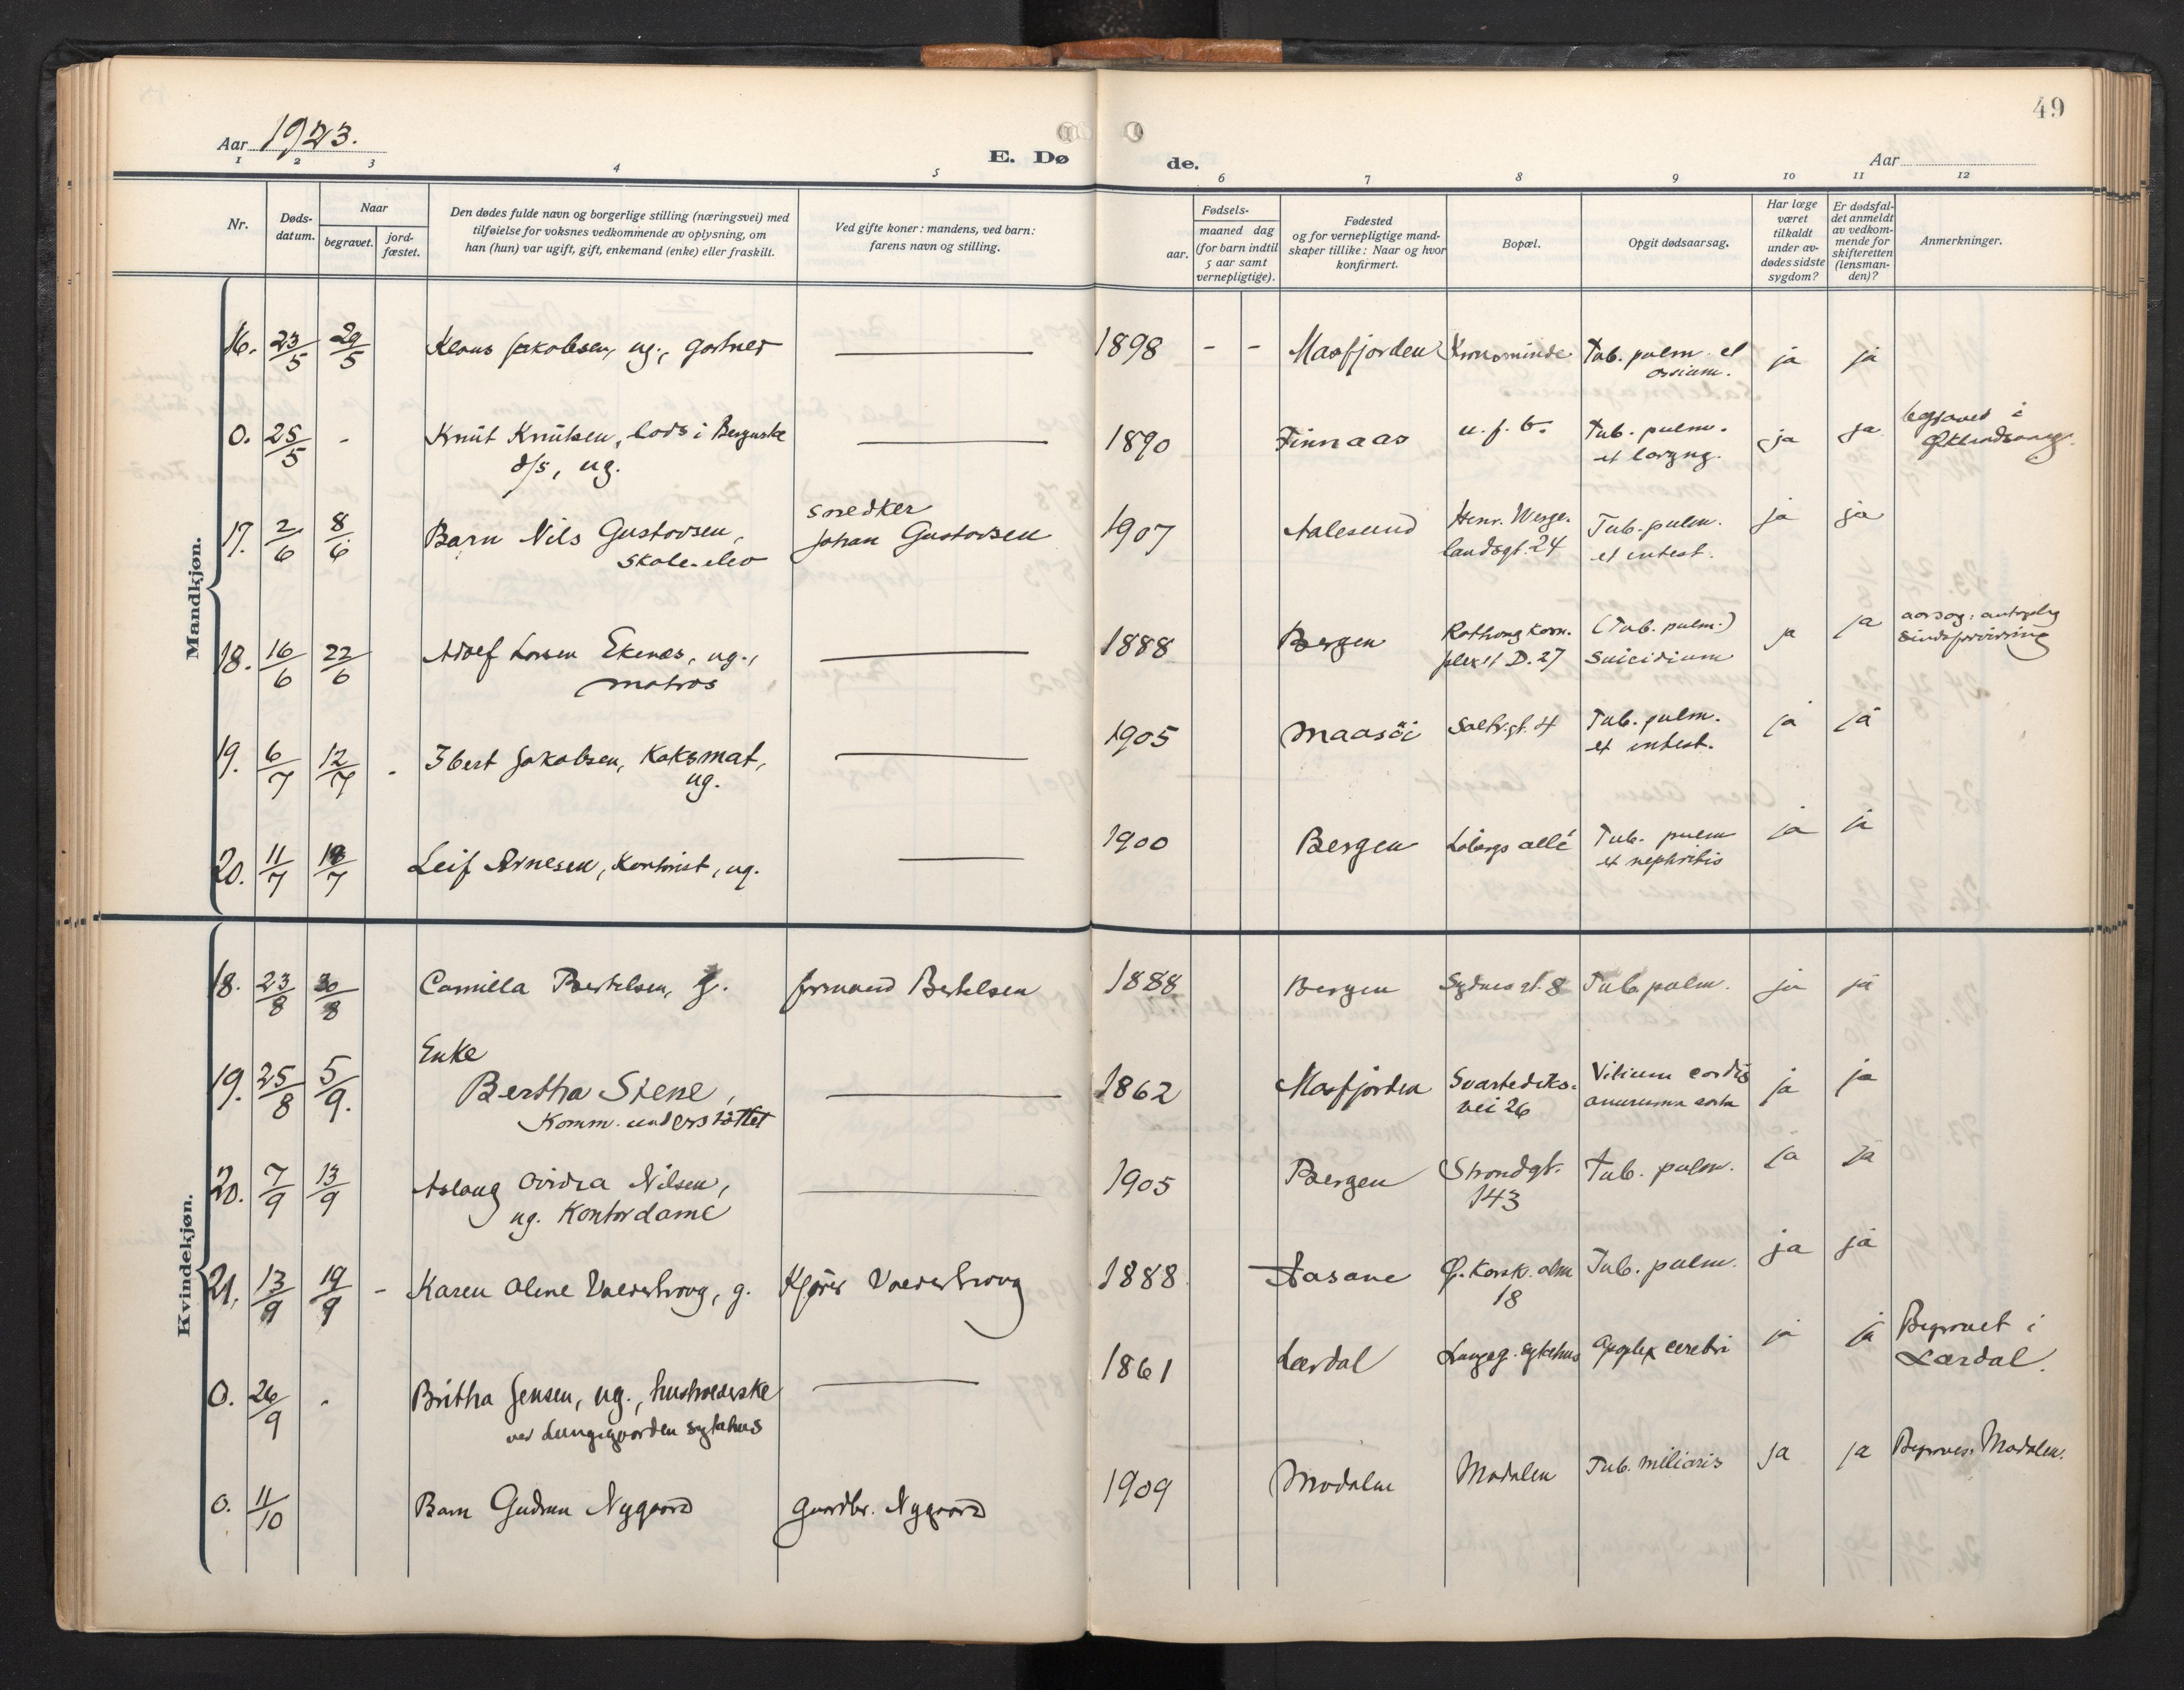 49
Aar 1923.
E. Dø de.
Aar
1 2 3 4 5 6 7 8 9 10 11 12
Nr.
Døds-datum.
Naar
begravet.
jord-fæstet.
Den dødes fulde navn og borgerlige stilling (næringsvei) med
tilføielse for voksnes vedkommende av oplysning, om
han (hun) var ugift, gift, enkemand (enke) eller fraskilt.
Ved gifte koner: mandens, ved barn:
farens navn og stilling.
Fødsels-
aar.
maaned dag
(for barn indtil
5 aar samt
vernepligtige).
Fødested
og for vernepligtige mand-
skaper tillike: Naar og hvor
konfirmert.
Bopæl.
Opgit dødsaarsag.
Har læge
været
tilkaldt
under av-
dødes sidste
sygdom?
Er dødsfal-
det anmeldt
av vedkom-
mende for
skifteretten
(lensman-
den)?
Anmerkninger.
Mandkjøn.
16. 23/5 29/5 Klaus Jakobsen, ug., gartner 1898 - - Masfjorden Kronominde Tub. pulm. et ja ja
ossium.
0. 25/5 - Knut Knutsen, lods i Bergenske 1890 Finnaas u. f. b. Tub. pulm. ja ja begravet i
d/s, ug. et laryng.
17. 2/6 8/6 Barn Nils Gustavsen, snedker 1907 Aalesund Henr. Werge- Tub. pulm. ja ja
skole-elev Johan Gustavsen landsgt. 24 et intest.
18. 16/6 22/6 Adolf Larsen Ekenæs, ug., 1888 Bergen Rothaug kom- (Tub. pulm.) ja ja aarsag: antagelig
matros plex D. 27 Suicidium sindsforvirring
19. 6/7 12/7 - Ibert Jakobsen, Koksmat, 1905 Maasöi Saltv.gt. 4 Tub. pulm. ja ja
ug. et intest.
20. 11/7 /7 Leif Arnesen, Kontorist, ug. 1900 Bergen Löbergs allé Tub. pulm ja ja
et nephritis
Kvindekjøn.
18. 23/8 30/8 Camilla Bertelsen, g. formand Bertelsen 1888 Bergen Sydnes gt. 8 Tub. pulm. ja ja
Enke
19. 25/8 5/9. Bertha Stene, 1862 Masfjorden Svartediks- Vitium cordis ja ja
Komm. understöttet vei 26
20. 7/9 13/9 Aslaug Ovidia Nilsen, 1905 Bergen Strandgt. Tub. pulm. ja ja
ug. Kontordame 143
21. 13/9 19/9 - Karen Oline Valderhaug, g. Kjörer Valderhaug 1888 Aasane Ø. Korsk. alm Tub. pulm. ja ja
18
0. 26/9 - Britha Jensen, ug., husholderske 1861 Lærdal Lungeg. sykehus Apoplex cerebri ja ja Begravet i
ved Lungegaarden sykehus Lærdal.
0. 11/10 Barn Gudrun Nygaard Gaardbr. Nygaard 1909 Modalen Modalen Tub. miliaris ja ja Begraves: Modalen.